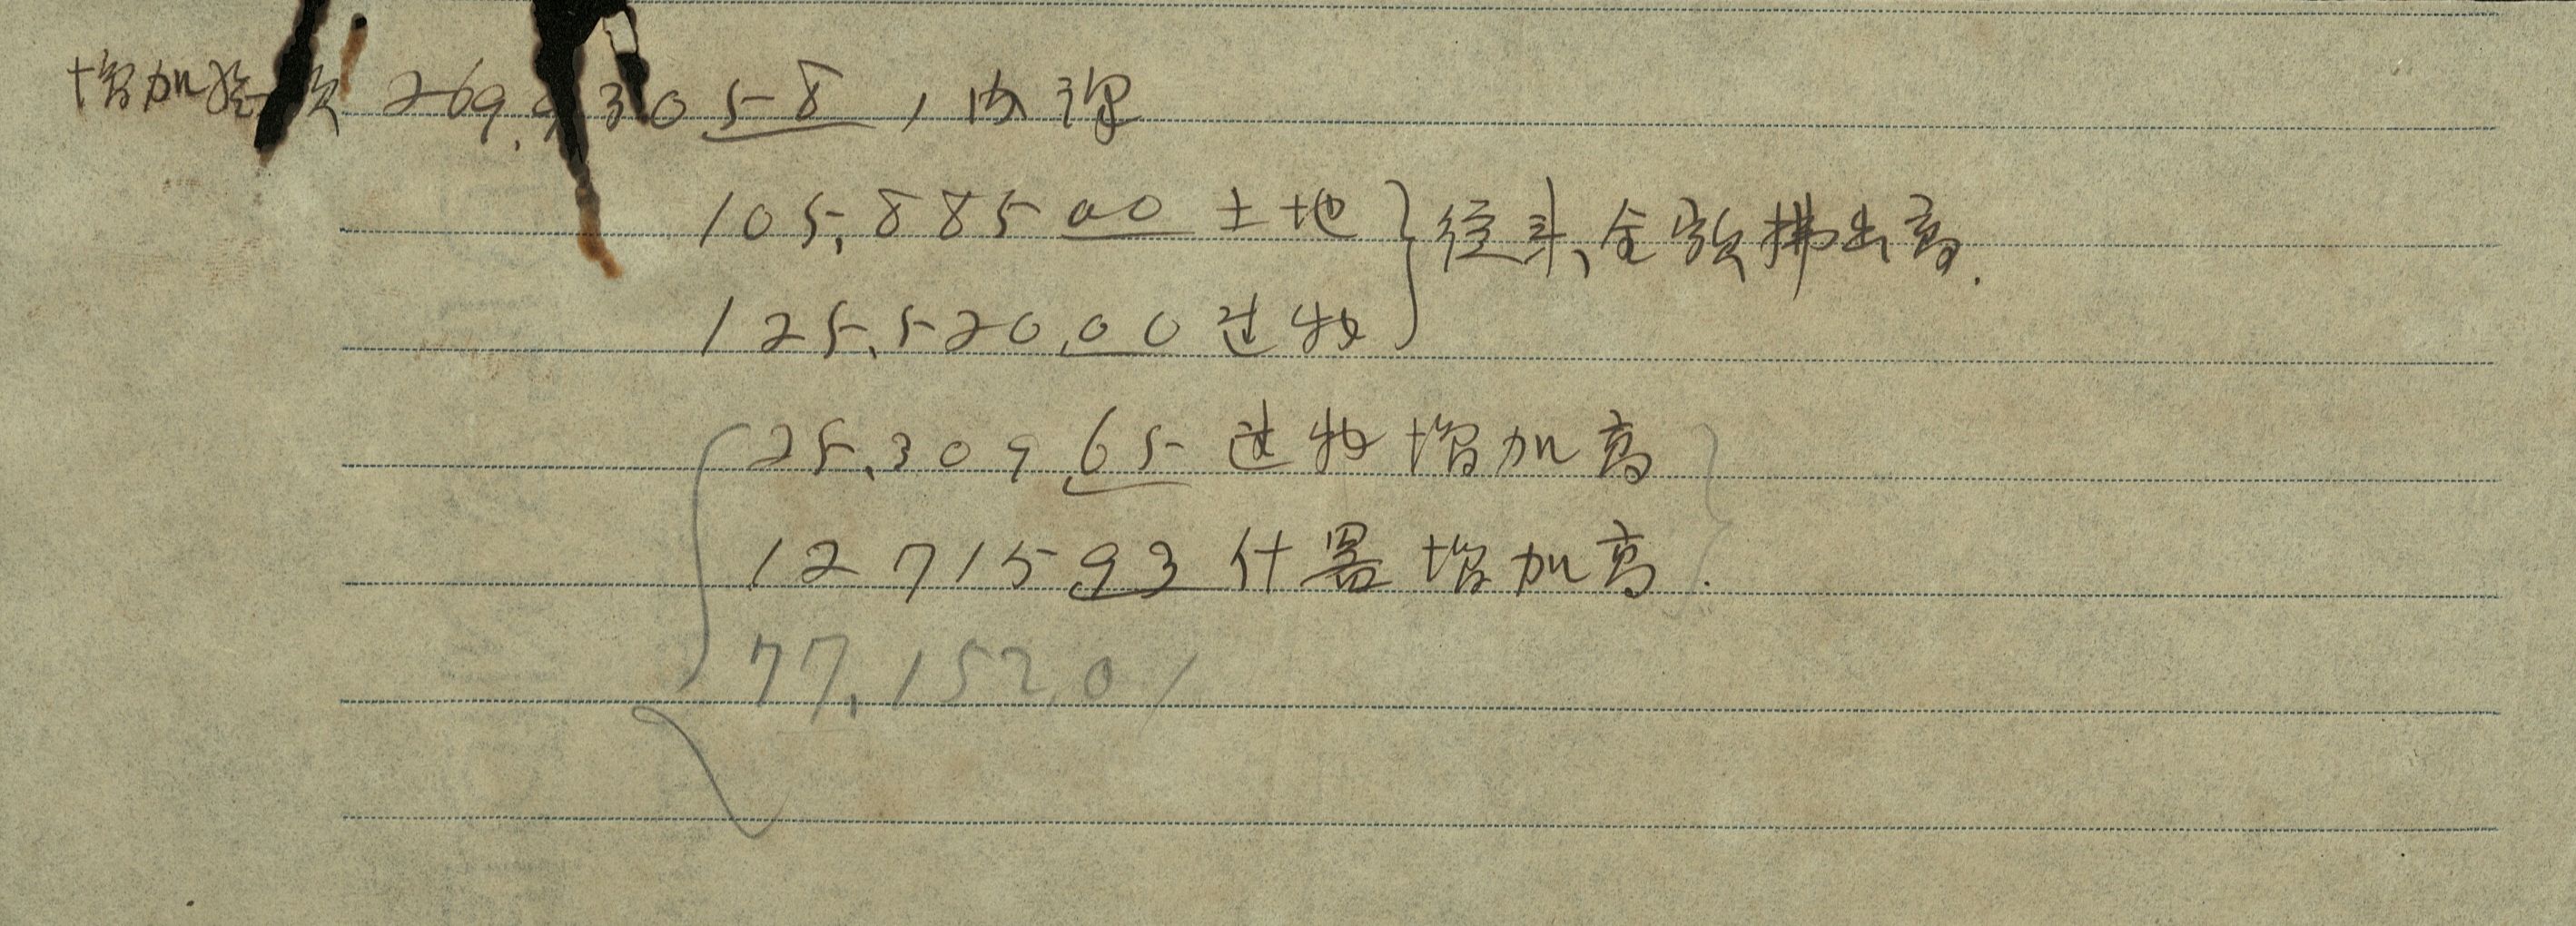 増加総額 269,430 58, 内訳
105,885 00 土地
125,520.00 建物
従来、全額拂出高.
25,309 65 建物増加高
12715 93 什器増加高.
77,152.01